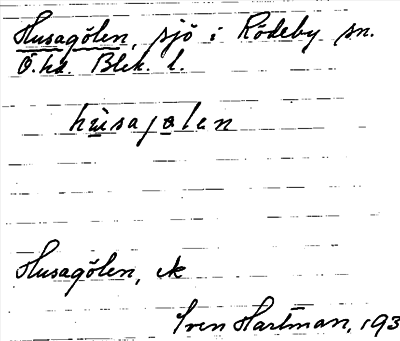 Husagölen, sjö i Rödeby sn.
Ö. hd. Blek. l.
husajølen
Husagölen, ek
Iven Hartman, 193